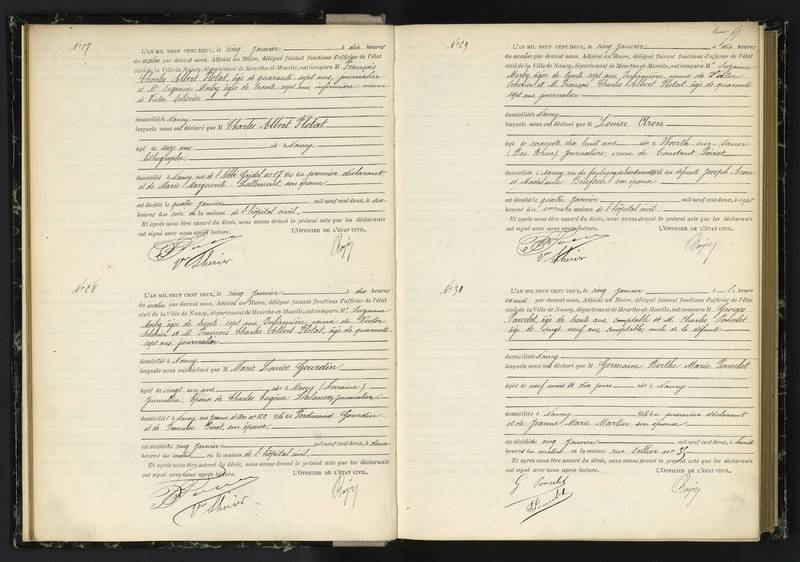 N° 27
L'AN MIL NEUF CENT DEUX, le cinq janvier à dix heures
du matin par devant nous, Adjoint au Maire, délégué faisant fonctions d'officier de l'état
civil de la Ville de Nancy, département de Meurthe-et-Moselle, ont comparu M François
Charles Albert Flotat, âgé de quarante sept ans, journalier
et Me Suzanne Morly, âgée de trente sept ans, infirmière, veuve
de Victor
domicilié à Nancy
lesquels nous ont déclaré que M Charles Albert Flotat
âgé de seize ans né à Nancy
lithographe
domicilié à Nancy, rue de l'Abbé Gridel n° 17 fils du premier déclarant
et de Marie Marguerite Lallement, son épouse
est décédé le quatre janvier mil neuf cent deux, à six
heures du soir de la maison de l'hôpital civil.
Et après nous être assuré du décès, nous avons dressé le présent acte que les déclarants
ont signé avec nous après lecture. L'OFFICIER DE L'ÉTAT CIVIL,
N° 28
L'AN MIL NEUF CENT DEUX, le cinq janvier à dix heures
du matin par devant nous, Adjoint au Maire, délégué faisant fonctions d'officier de l'état
civil de la Ville de Nancy, département de Meurthe-et-Moselle, ont comparu Me Suzanne
Morly, âgée de trente sept ans, infirmière, veuve de Victor
et M. François Charles Albert Flotat, âgé de quarante
sept ans, journalier
domicilié à Nancy
lesquels nous ont déclaré que M Marie Louise Gourdin
âgée de vingt un ans née à (Lorraine)
journalière, épouse de Charles Eugène journalier
domicilié à Nancy, rue Jeanne d'Arc n° 162 fille de Ferdinand Gourdin
et de son épouse
est décédée cinq janvier mil neuf cent deux, à deux
heures du matin en la maison de l'hôpital civil.
Et après nous être assuré du décès, nous avons dressé le présent acte que les déclarants
ont signé avec nous après lecture. L'OFFICIER DE L'ÉTAT CIVIL,
N° 29
L'AN MIL NEUF CENT DEUX, le cinq janvier à dix heures
du matin par devant nous, Adjoint au Maire, délégué faisant fonctions d'officier de l'état
civil de la Ville de Nancy, département de Meurthe-et-Moselle, ont comparu Me Suzanne
Morly, âgée de trente sept ans, infirmière, veuve de Victor
et M. François Charles Albert Flotat, âgé de quarante
sept ans, journalier
domicilié à Nancy
lesquels nous ont déclaré que M Louise Aron
âgée de soixante dix huit ans née à Woerth sur Sauer
(Bas Rhin), journalière, veuve de Constant Poirot
domiciliée à Nancy, rue du faubourg fille des défunts Joseph Aron
et Madelaine son épouse
est décédée quatre janvier mil neuf cent deux, à sept
heures du soir en la maison de l'hôpital civil.
Et après nous être assuré du décès, nous avons dressé le présent acte que les déclarants
ont signé avec nous après lecture. L'OFFICIER DE L'ÉTAT CIVIL,
N° 30
L'AN MIL NEUF CENT DEUX, le cinq janvier à heure
du par devant nous, Adjoint au Maire, délégué faisant fonctions d'officier de l'état
civil de la Ville de Nancy, département de Meurthe-et-Moselle, ont comparu M Georges
Poncelet, âgé de trente ans, comptable et M. Charles Poncelet
âgé de vingt neuf ans, comptable, oncle de la défunte
domicilié à Nancy
lesquels nous ont déclaré que M Germaine Berthe Marie Poncelet
âgée de neuf mois dix jours née à Nancy
domiciliée à Nancy fille du premier déclarant
et de Jeanne Marie Martin, son épouse
est décédée cinq janvier mil neuf cent deux, à huit
heures du matin en la maison rue Sellier n° 35
Et après nous être assuré du décès, nous avons dressé le présent acte que les déclarants
ont signé avec nous après lecture. L'OFFICIER DE L'ÉTAT CIVIL,
G Poncelet